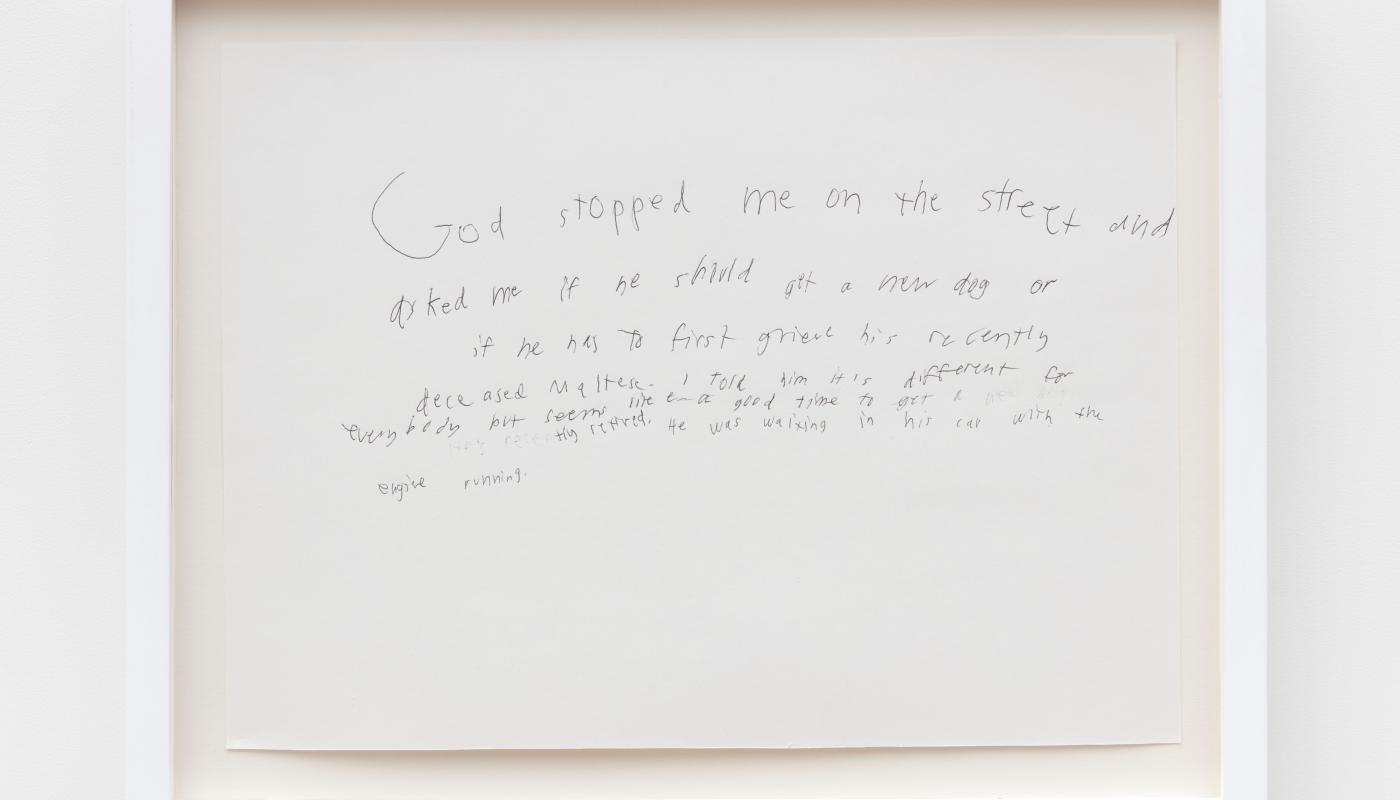 God stopped me on the street and
asked me if he should get a new dog or
if he has to first grieve his recently
deceased Maltese. I told him it's different for
everybody but seems like a good time to get a new dog
He's recently retired. He was waiting in his car with the
engine running.